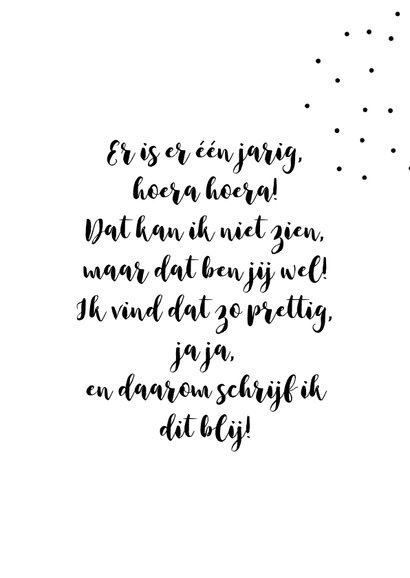 Er is er één jarig,
hoera hoera!
Dat kan ik niet zien,
maar dat ben jij wel!
Ik vind dat zo prettig,
ja ja,
en daarom schrijf ik
dit blij!